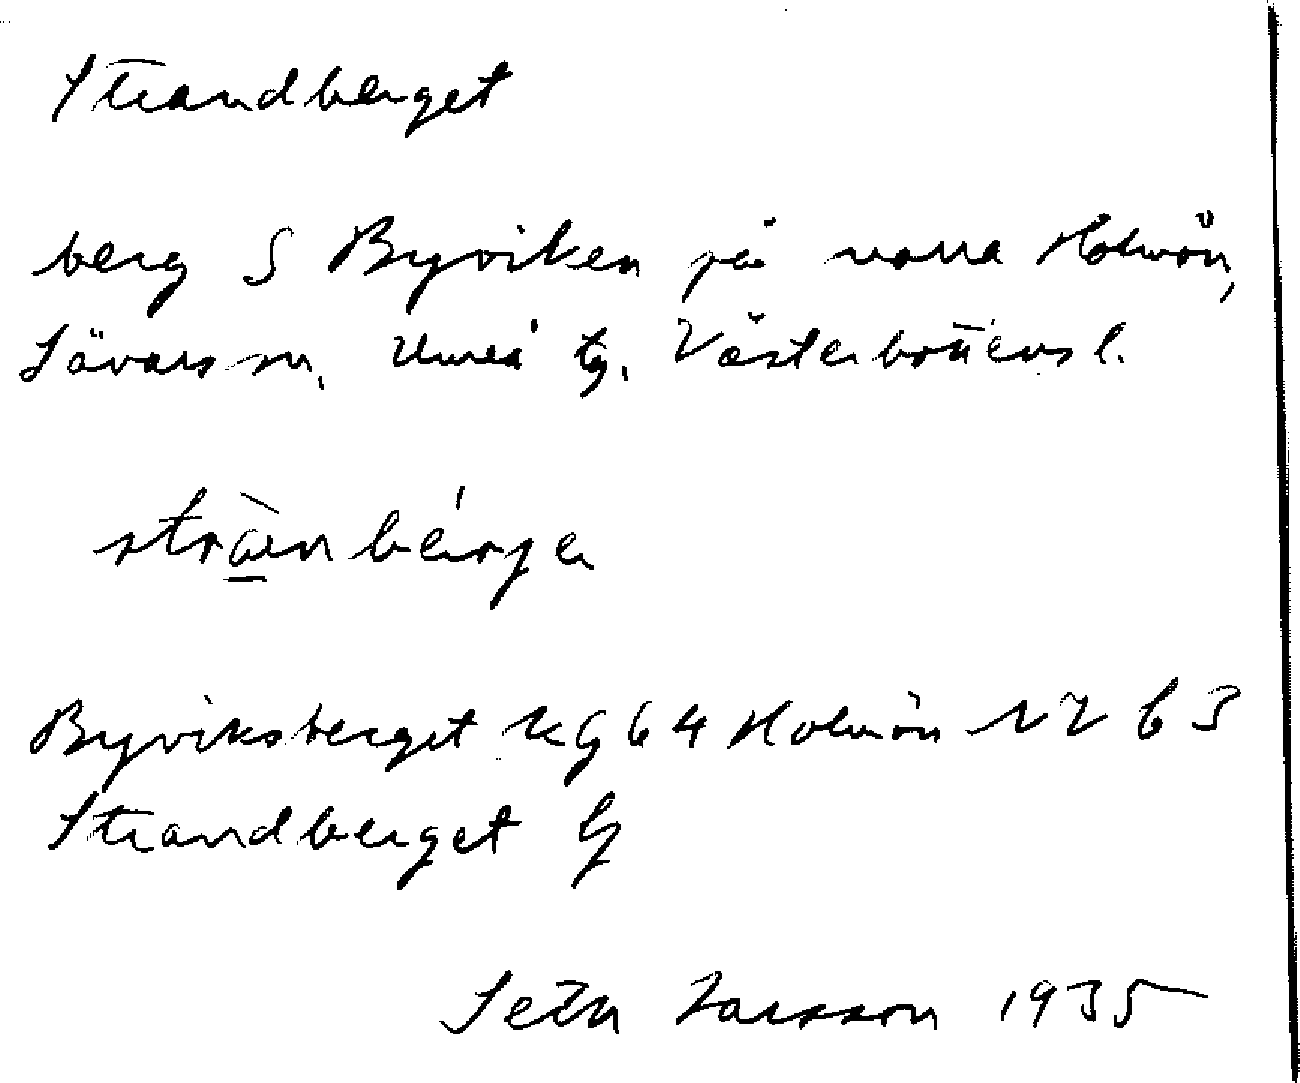 Strandberget
berg S Byviken på norra Holmön,
Sävars sn, Umeå tg, Västerbottens l.
Byviksberget KG 64 Holmön NV b 3
Strandberget
Seth Larsson 1935